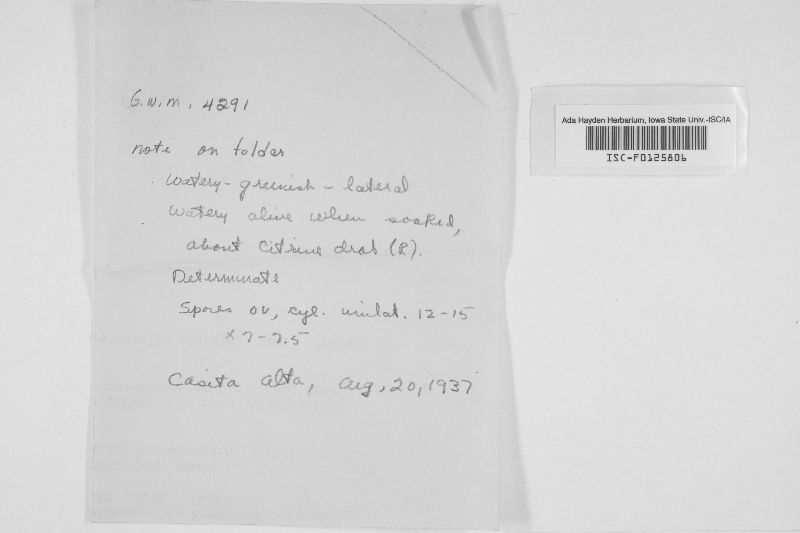 G.W.M. 4291
note on folder
Watery-greenish - lateral
Watery olive when soaked,
about Citrine drab (R).
Determinate
Spores ov, cyl. 12-15
x 7-7.5
Casita Alta, Aug, 20, 1937
Ada Hayden Herbarium, Iowa State Univ.-ISC/IA
ISC-F0125806